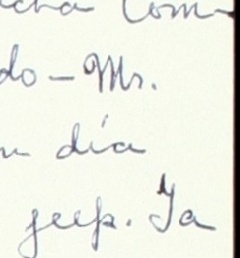 cha Com-
do - Mr.
n día
jeep. Ya